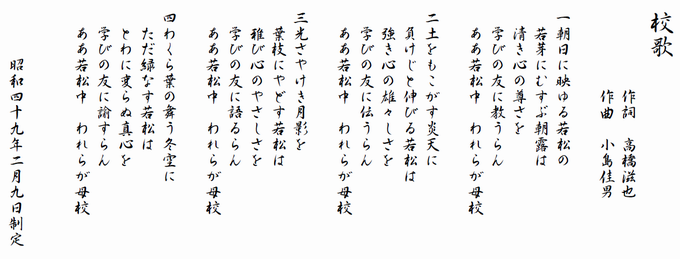 校歌
作詞　高橋滋也
作曲　小島佳男
一朝日に映ゆる若松の
若芽にむすぶ朝露は
清き心の尊さを
学びの友に教うらん
ああ若松中　われらが母校
二土をもこがす炎天に
負けじと伸びる若松は
強き心の雄々しさを
学びの友に伝うらん
ああ若松中　われらが母校
三光さやけき月影を
葉枝にやどす若松は
雅び心のやさしさを
学びの友に語るらん
ああ若松中　われらが母校
四わくら葉の舞う冬空に
ただ緑なす若松は
とわに変らぬ真心を
学びの友に諭すらん
ああ若松中　われらが母校
昭和四十九年二月九日制定